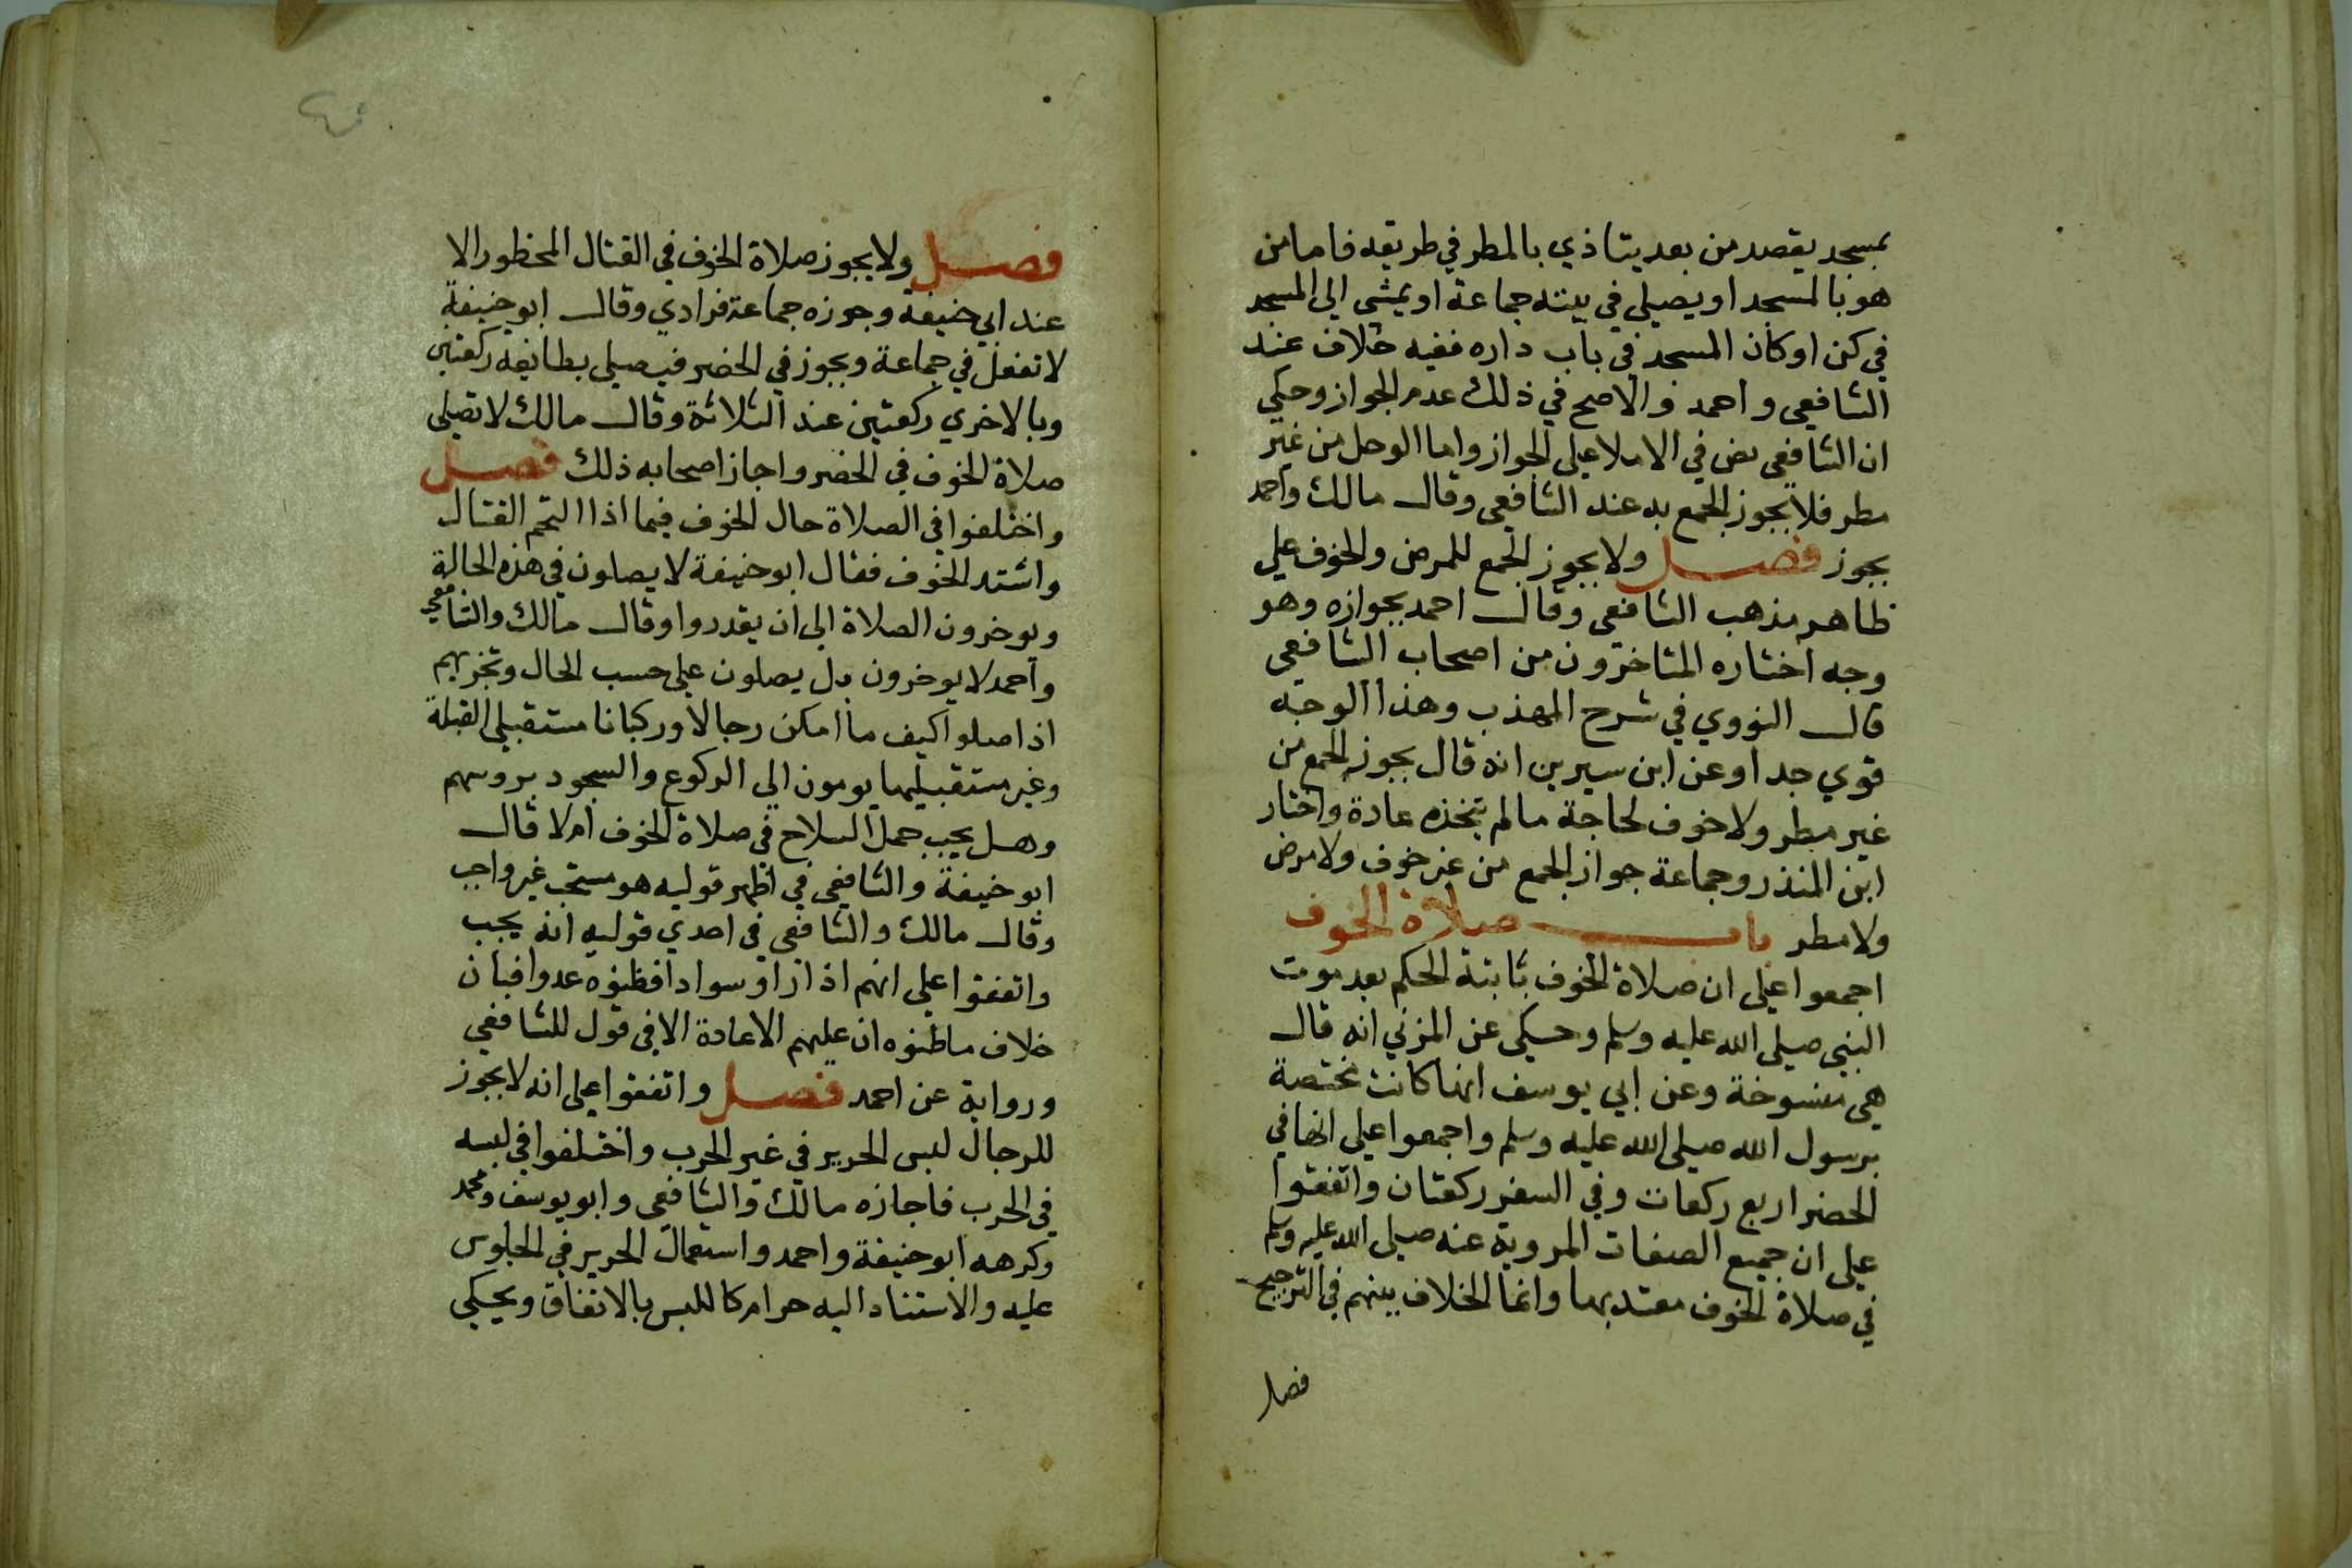 بمسجد يقصد من بعد يتاذي بالمطر في طريقه فاما من
هو بالمسجد او يصلي في بيته جماعة او يمشي الى المسجد
في كن او كان المسجد في باب داره ففيه خلاف عند
الشافعي واحمد والاصح في ذلك عدم الجواز وحكي
ان الشافعي نص في الاملا على الجواز واما الوحل من غير
مطر فلا يجوز الجمع به عند الشافعي وقال مالك واحمد
يجوز فصل ولا يجوز الجمع للمرض والخوف على
ظاهر مذهب الشافعي وقال احمد بجوازه وهو
وجه اختاره المتاخرون من اصحاب الشافعي
قال النووي في شرح المهذب وهذا الوجه
قوي جدا وعن ابن سيرين انه قال يجوز الجمع من
غير مطر ولا خوف لحاجة مالم يتخذه عادة واختار
ابن المنذر وجماعة جواز الجمع من غير خوف ولا مرض
ولا مطر باب صلاة الخوف
اجمعوا على ان صلاة الخوف ثابتة الحكم بعد موت
النبي صلى الله عليه وسلم وحكى عن المزني انه قال
هي منسوخة وعن ابي يوسف انها كانت مختصة
برسول الله صلى الله عليه وسلم واجمعوا على انها في
الحضر اربع ركعات وفي السفر ركعتان واتفقوا
على ان جميع الصفات المروية عنه صلى الله عليه وسلم
في صلاة الخوف معتد بها وانما الخلاف بينهم في الترجيح
فصل
فصل ولا يجوز صلاة الخوف في القتال المحظور الا
عند ابي حنيفة وجوزه جماعة فرادي وقال ابو حنيفة
لا تفعل في جماعة ويجوز في الحضر فيصلى بطايفه ركعتين
وبالاخري ركعتين عند الثلاثة وقال مالك لا تصلى
صلاة الخوف في الحضر واجاز اصحابه ذلك فصل
واختلفوا في الصلاة حال الخوف فيما اذا التحم القتال
واشتد الخوف فقال ابو حنيفة لا يصلون في هذه الحالة
ويوخرون الصلاة الى ان يقدروا وقال مالك والشافعي
واحمد لا يوخرون بل يصلون على حسب الحال وتجزيهم
اذا صلوا كيف ما امكن رجالا وركبانا مستقبلي القبلة
وغير مستقبليها يومون الى الركوع والسجود بروسهم
وهل يجب حمل السلاح في صلاة الخوف ام لا قال
ابو حنيفة والشافعي في اظهر قوليه هو مستحب غير واجب
وقال مالك والشافعي في احدي قوليه انه يجب
واتفقوا على انهم اذا راوا سوادا فظنوه عدوا فبان
خلاف ما ظنوه ان عليهم الاعادة الا في قول للشافعي
ورواية عن احمد فصل واتفقوا على انه لا يجوز
للرجال لبس الحرير في غير الحرب واختلفوا في لبسه
في الحرب فاجازه مالك والشافعي وابو يوسف ومحمد
وكرهه ابو حنيفة واحمد واستعمال الحرير في الجلوس
عليه والاستناد اليه حرام كاللبس بالاتفاق ويحكي